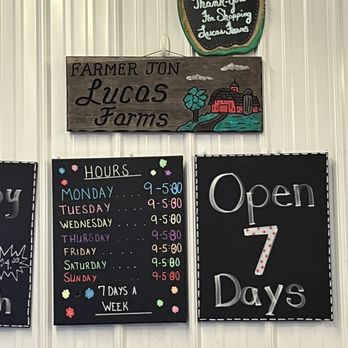 Thank-You
For Shopping
Lucas Farms
FARMER JON
Lucas
Farms
HOURS
MONDAY .... 9-5:00
TUESDAY .... 9-5:00
WEDNESDAY .... 9-5:00
THURSDAY .... 9-5:00
FRIDAY .... 9-5:00
SATURDAY .... 9-5:00
SUNDAY .... 9-5:00
7 DAYS A
WEEK
Open
7
Days